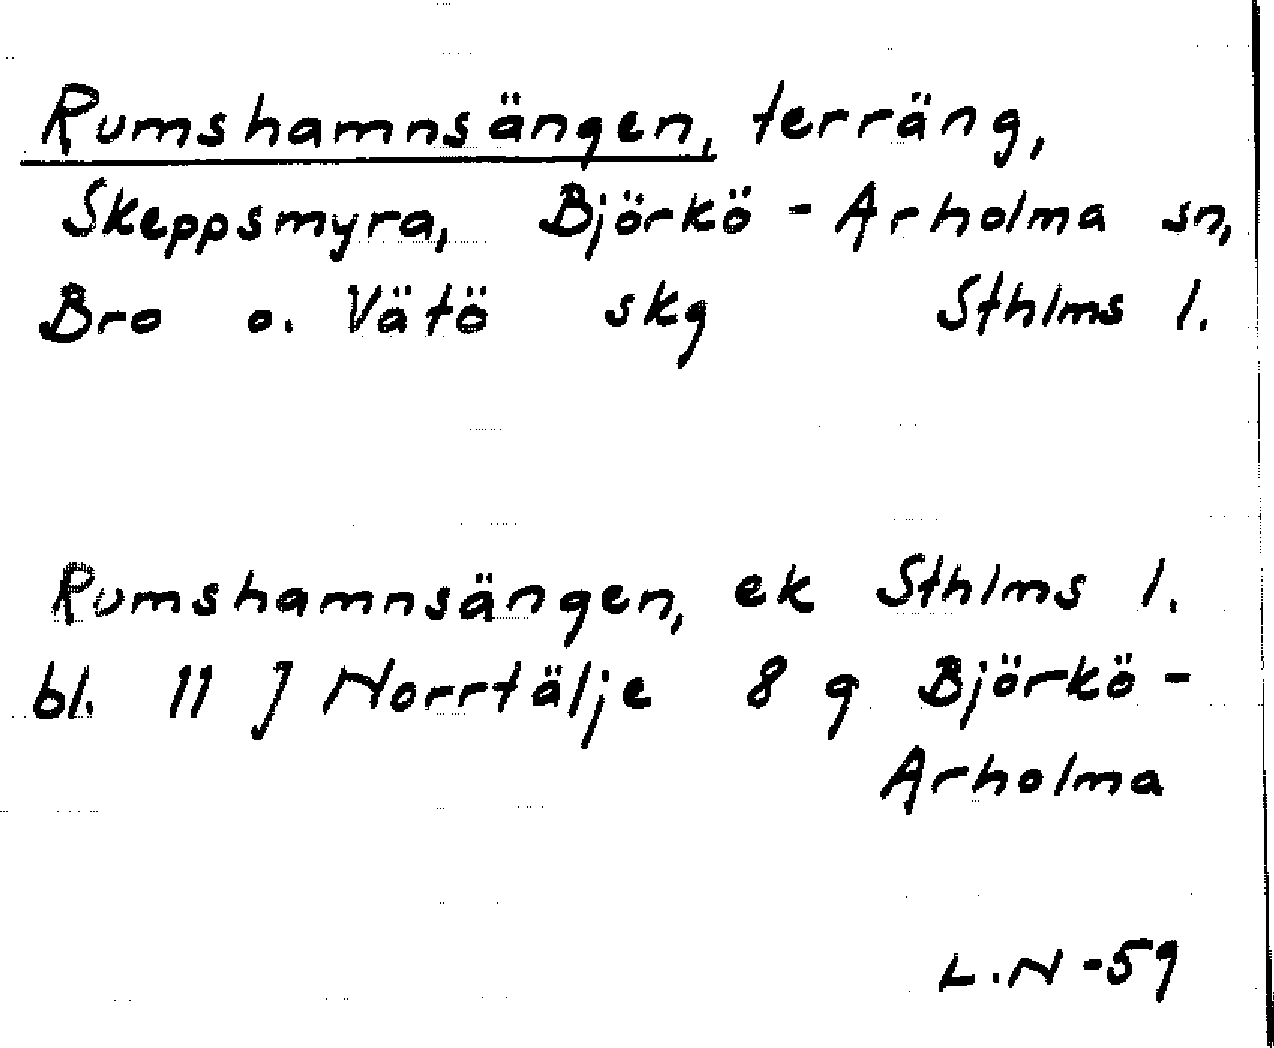 Rumshamnsängen, terräng,
Skeppsmyra, Björkö-Arholma sn,
Bro o. Vätö skg Sthlms l.
Rumshamnsängen, ek Sthlms l.
bl. 11 J Norrtälje 8 g Björkö-
Arholma
L.N-59